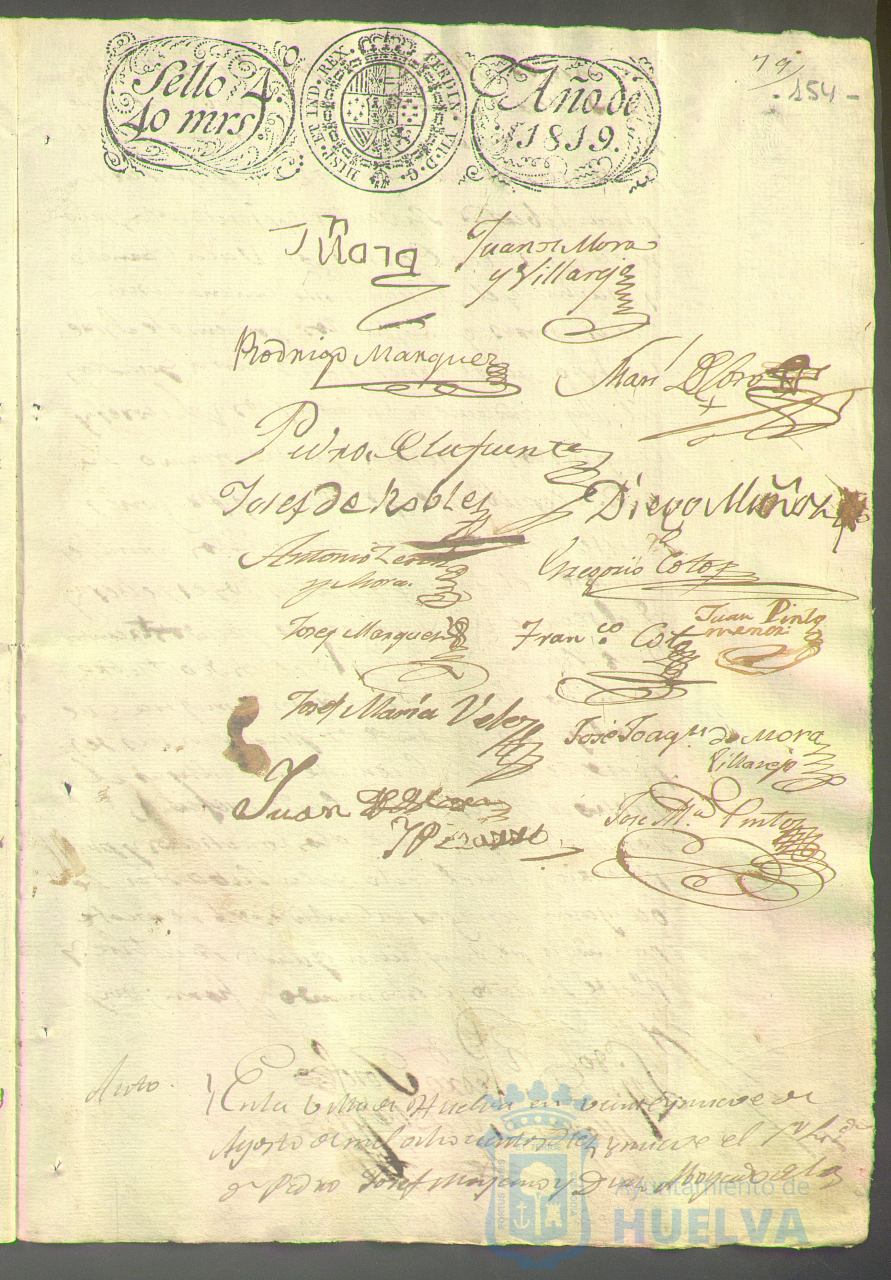 Sello 4.
40 mrs
HISP. ET IND. REX. FERDIN. VII. D. G.
Año de
1819.
79
-154-
Juan de Mora
y Villarejo
Rodrigo Marquez
Pedro de la fuente
Josef de Robles
Diego Muñoz
Antonio
y Mora.
Gregorio Coto
Josef Marquez
Fran.co Coto
Juan Pinto
menor
Josef María Velez
José Joaqn de Mora
Villarejo
Juan
José Ma Pinto
Auto.
En la Villa de Huelva en veinte y nueve de
Agosto de mil ocho cientos diez y nueve el
Dn Pedro Josef Moyano y Diaz Abogado de los
Ayuntamiento de
HUELVA